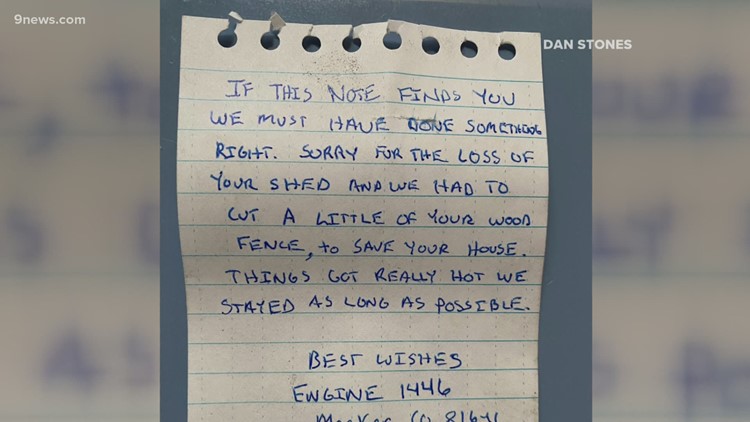 9news.com
DAN STONES
IF THIS NOTE FINDS YOU
WE MUST HAVE DONE SOMETHING
RIGHT. SORRY FOR THE LOSS OF
YOUR SHED AND WE HAD TO
CUT A LITTLE OF YOUR WOOD
FENCE, to SAVE YOUR HOUSE.
THINGS GOT REALLY HOT WE
STAYED AS LONG AS POSSIBLE.
BEST WISHES
ENGINE 1446
Meeker Co 81641